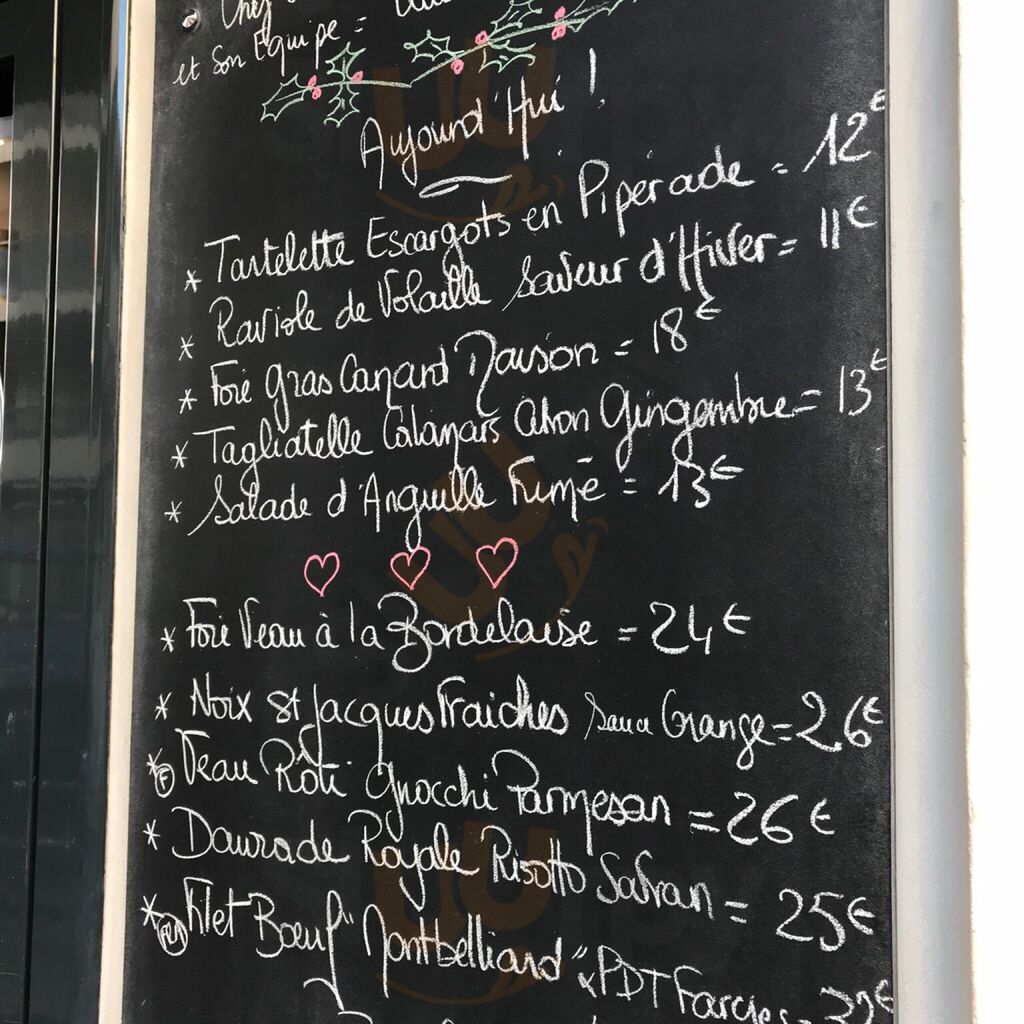 Chef
et son Équipe =
Aujourd'Hui !
* Tartelette Escargots en Piperade = 12€
* Raviole de Volaille Saveur d'Hiver = 11€
* Foie gras Canard Maison = 18€
* Tagliatelle Calamars Citron Gingembre = 13€
* Salade d'Anguille Fumé = 13€
* Foie Veau à la Bordelaise = 24€
* Noix St Jacques Fraiches Sauce Orange = 26€
* (F) Veau Rôti Gnocchi Parmesan = 26€
* Daurade Royale Risotto Safran = 25€
* Filet Bœuf "Montbelliard" PDT Farcies =